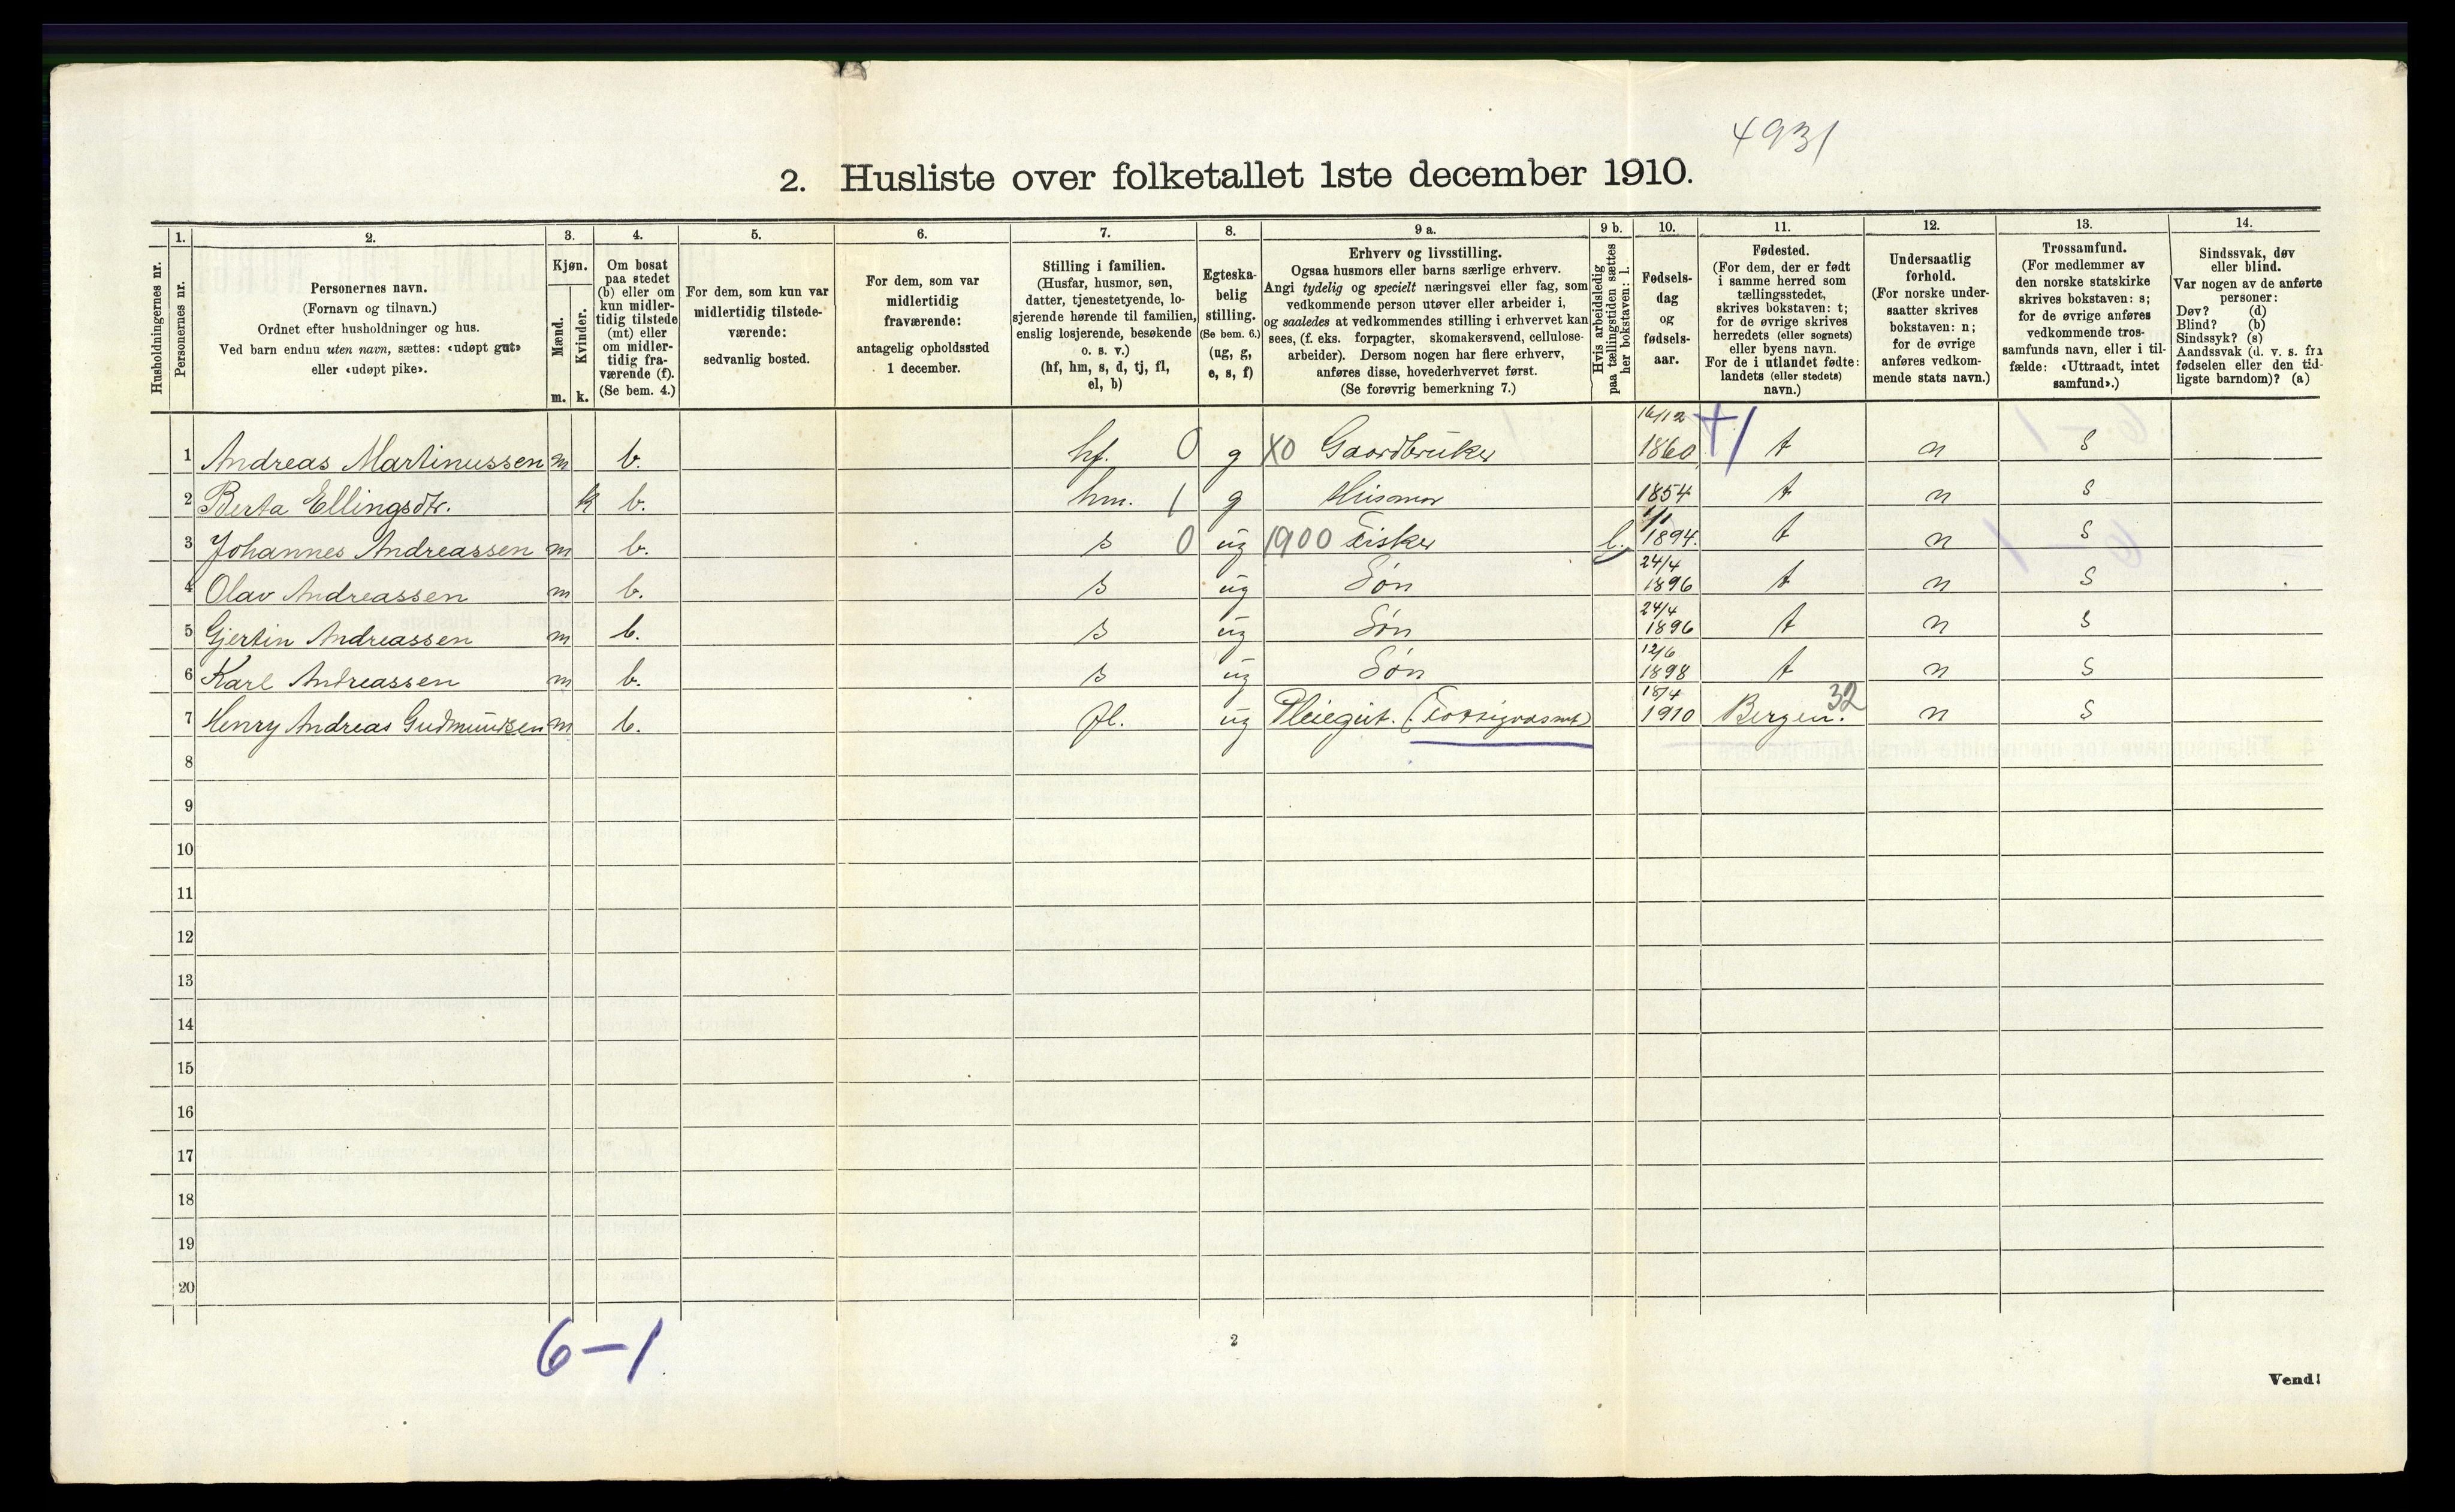 4931
2. Husliste over folketallet 1ste december 1910.
Husholdningernes nr.
1.
Personernes nr.
2.
Personernes navn.
(Fornavn og tilnavn.)
Ordnet efter husholdninger og hus.
Ved barn endnu uten navn, sættes: «udøpt gut»
eller «udøpt pike».
3.
Kjøn.
Mænd.
Kvinder.
m. k.
4.
Om bosat
paa stedet
(b) eller om
kun midler-
tidig tilstede
(mt) eller
om midler-
tidig fra-
værende (f).
(Se bem. 4.)
5.
For dem, som kun var
midlertidig tilstede-
værende:
sedvanlig bosted.
6.
For dem, som var
midlertidig
fraværende:
antagelig opholdssted
1 december.
7.
Stilling i familien.
(Husfar, husmor, søn,
datter, tjenestetyende, lo-
sjerende hørende til familien,
enslig losjerende, besøkende
o. s. v.)
(hf, hm, s, d, tj, fl,
el, b)
8.
Egteska-
belig
stilling.
(Se bem. 6.)
(ug, g,
e, s, f)
9 a.
Erhverv og livsstilling.
Ogsaa husmors eller barns særlige erhverv.
Angi tydelig og specielt næringsvei eller fag, som
vedkommende person utøver eller arbeider i,
og saaledes at vedkommendes stilling i erhvervet kan
sees, (f. eks. forpagter, skomakersvend, cellulose-
arbeider). Dersom nogen har flere erhverv,
anføres disse, hovederhvervet først.
(Se forøvrig bemerkning 7.)
9 b.
Hvis arbeidsledig
paa tællingstiden sættes
her bokstaven: l.
10.
Fødsels-
dag
og
fødsels-
aar.
11.
Fødested.
(For dem, der er født
i samme herred som
tællingsstedet,
skrives bokstaven: t;
for de øvrige skrives
herredets (eller sognets)
eller byens navn.
For de i utlandet fødte:
landets (eller stedets)
navn.)
12.
Undersaatlig
forhold.
(For norske under-
saatter skrives
bokstaven: n;
for de øvrige
anføres vedkom-
mende stats navn.)
13.
Trossamfund.
(For medlemmer av
den norske statskirke
skrives bokstaven: s;
for de øvrige anføres
vedkommende tros-
samfunds navn, eller i til-
fælde: «Uttraadt, intet
samfund».)
14.
Sindssvak, døv
eller blind.
Var nogen av de anførte
personer:
Døv? (d)
Blind? (b)
Sindssyk? (s)
Aandssvak (d. v. s. fra
fødselen eller den tid-
ligste barndom)? (a)
1 Andreas Martinussen m b. hf. 0 g X0 Gaardbruker 16/12 1860 t n s
2 Berta Ellingsdtr. k b. hm. 1 g Husmor 1854 t n s
3 Johannes Andreassen m b. s 0 ug 1900 Fisker l. 1/1 1894. t n s
4 Olav Andreassen m b. s ug Søn 24/4 1896 t n s
5 Gjertin Andreassen m b. s ug Søn 24/4 1896 t n s
6 Karl Andreassen m b. s ug Søn 12/6 1898 t n s
7 Henry Andreas Gudmundsen m b. fl. ug Pleiegut. 18/4 1910 Bergen. 32 n s
8
9
10
11
12
13
14
15
16
17
18
19
20
6-1
2
Vend!